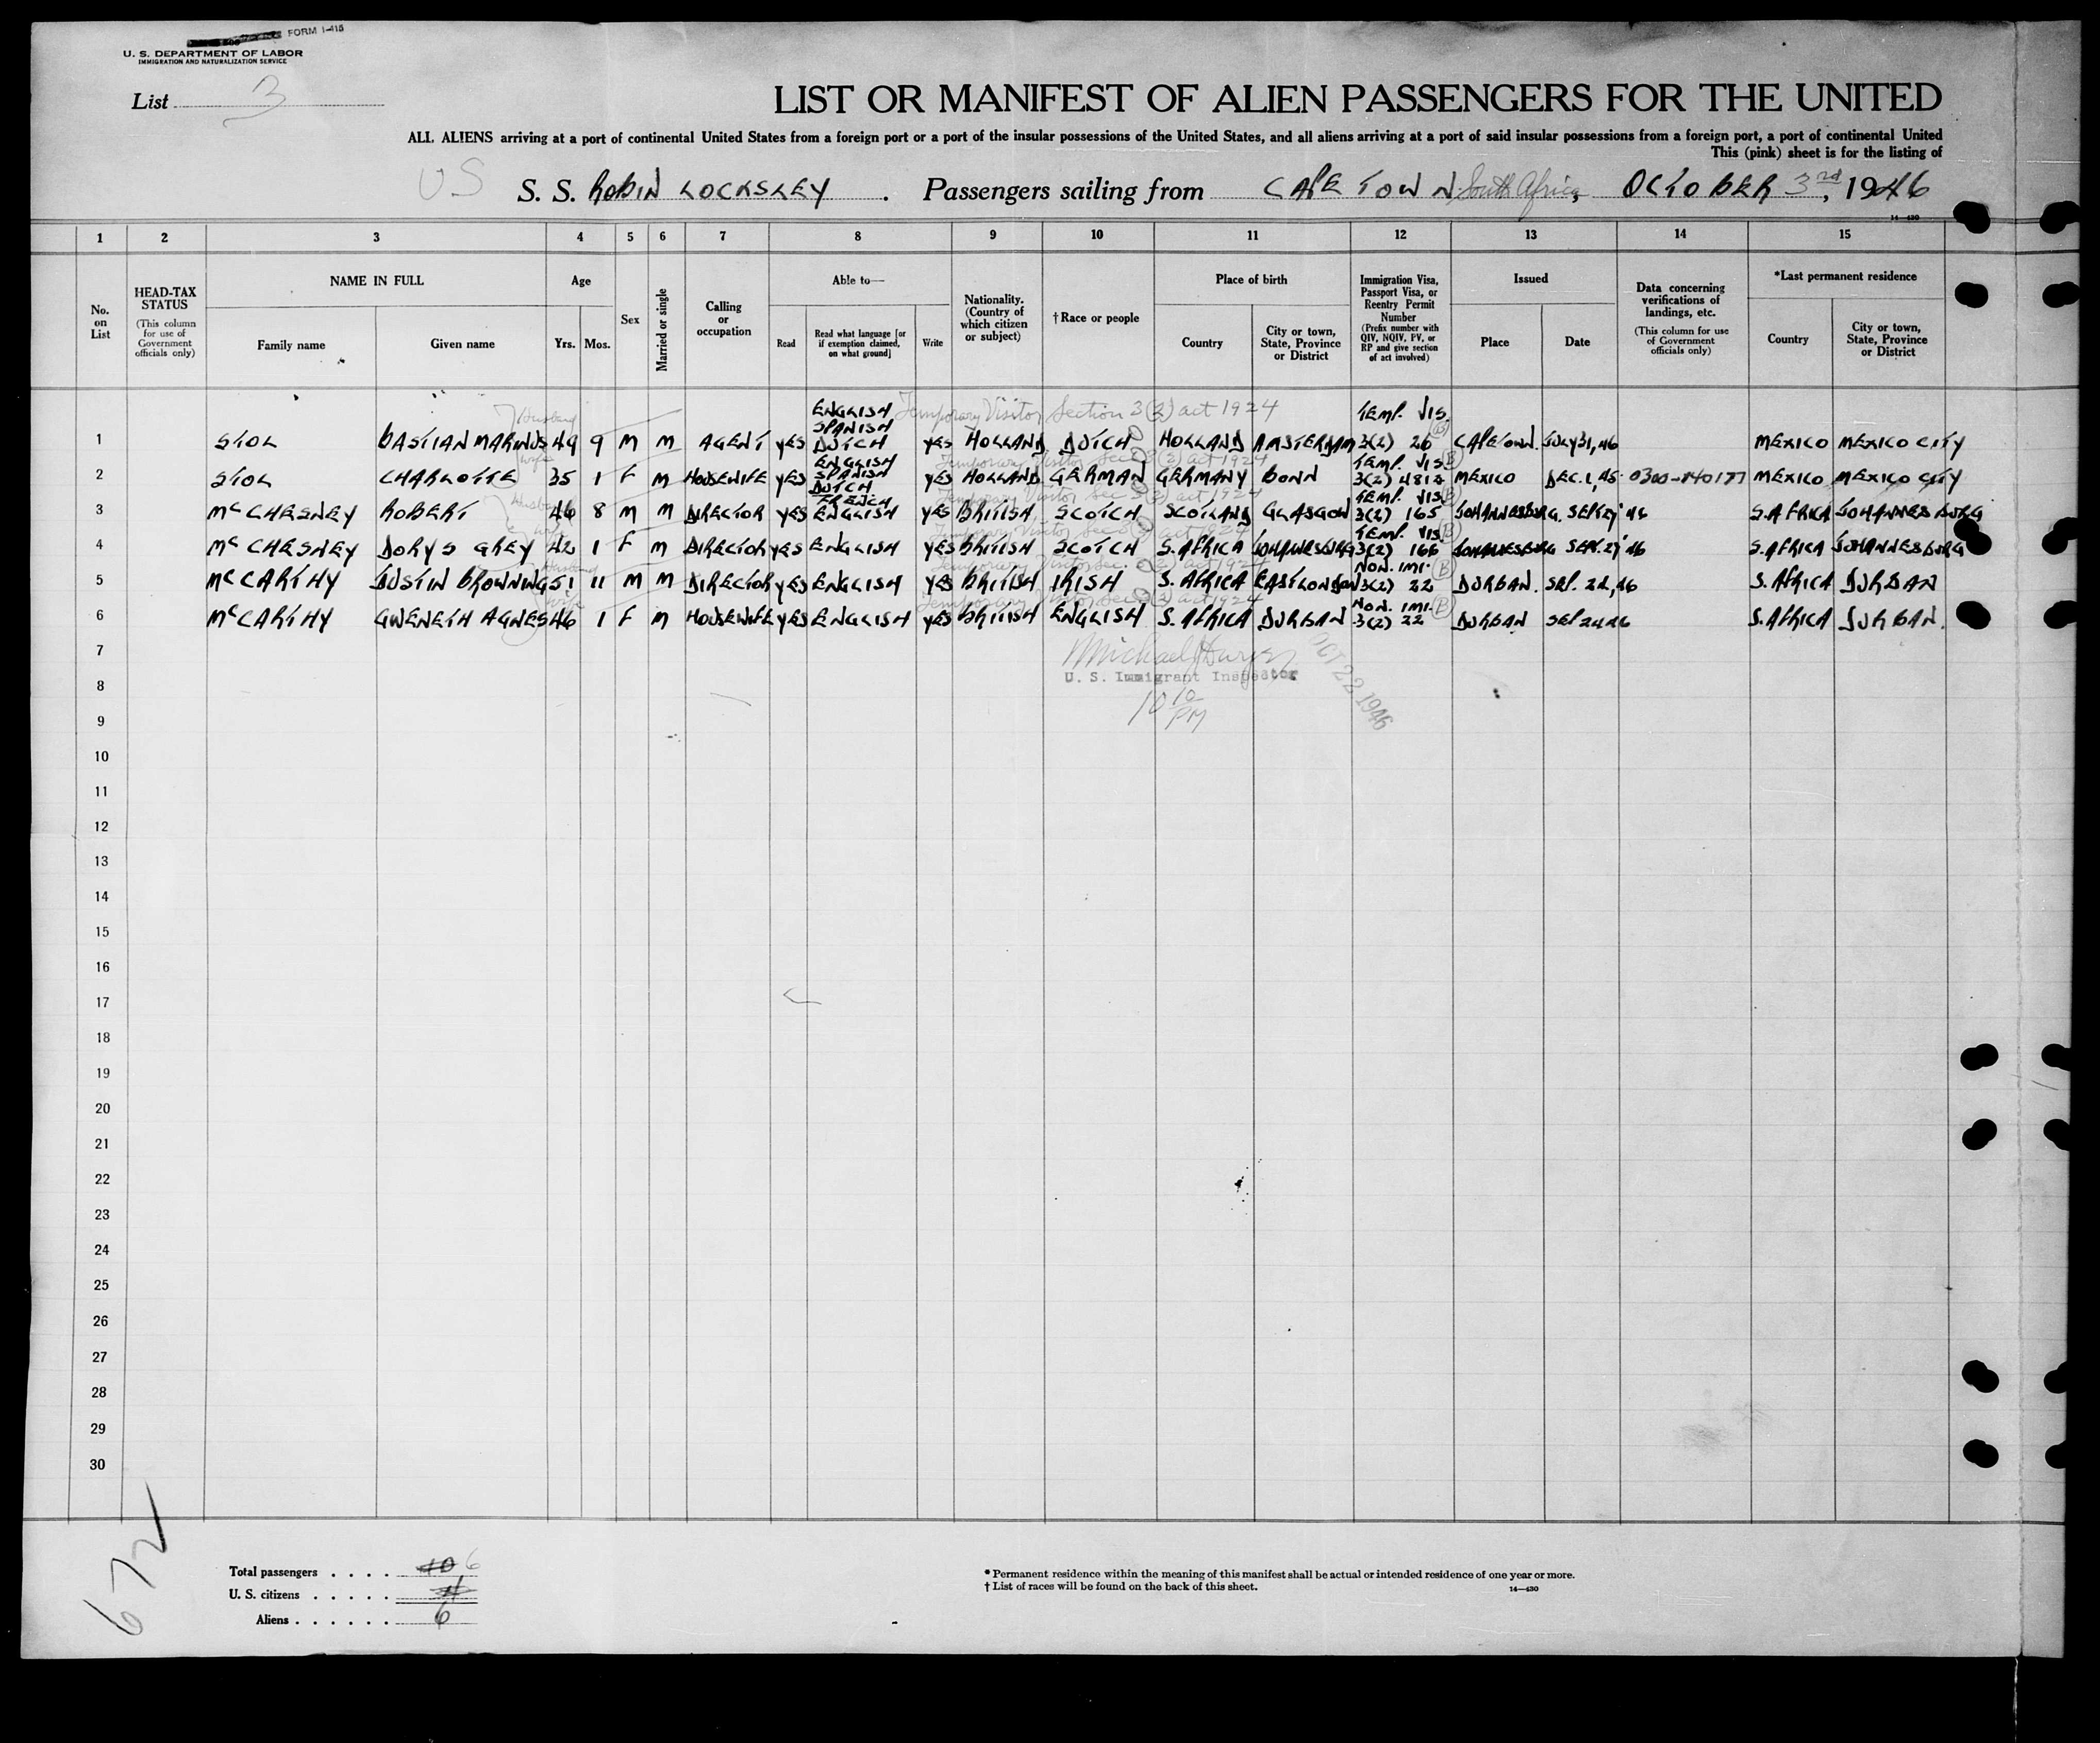 FORM I-415
U. S. DEPARTMENT OF LABOR
IMMIGRATION AND NATURALIZATION SERVICE
List 3
LIST OR MANIFEST OF ALIEN PASSENGERS FOR THE UNITED
ALL ALIENS arriving at a port of continental United States from a foreign port or a port of the insular possessions of the United States, and all aliens arriving at a port of said insular possessions from a foreign port, a port of continental United
This (pink) sheet is for the listing of
US S. S. ROBIN LOCKSLEY . Passengers sailing from CAPE TOWN South Africa, OCTOBER 3rd, 1946
14—430
1 2 3 4 5 6 7 8 9 10 11 12 13 14 15
No. on List
HEAD-TAX STATUS (This column for use of Government officials only)
NAME IN FULL
Family name Given name
Age
Yrs. Mos.
Sex
Married or single
Calling or occupation
Able to—
Read Read what language [or if exemption claimed, on what ground] Write
Nationality. (Country of which citizen or subject)
†Race or people
Place of birth
Country City or town, State, Province or District
Immigration Visa, Passport Visa, or Reentry Permit Number (Prefix number with QIV, NQIV, PV, or RP and give section of act involved)
Issued
Place Date
Data concerning verifications of landings, etc. (This column for use of Government officials only)
*Last permanent residence
Country City or town, State, Province or District
Husband ENGLISH Temporary Visitor Section 3(2) act 1924 TEMP. VIS.
SPANISH
1 STOL BASTIAN MARINUS 49 9 M M AGENT YES DUTCH YES HOLLAND DUTCH HOLLAND AMSTERDAM 3(2) 26 CAPETOWN. JULY 31, 46 MEXICO MEXICO CITY
wife ENGLISH Temporary Visitor Sec 3(2) act 1924 TEMP. VIS B
SPANISH
2 STOL CHARLOTTE 35 1 F M HOUSEWIFE YES DUTCH YES HOLLAND GERMAN GERMANY BONN 3(2) 4812 MEXICO DEC. 1, 45 0300-140177 MEXICO MEXICO CITY
Husband FRENCH Temporary Visitor Sec 3(2) act 1924 TEMP. VIS B
3 McCHESNEY ROBERT 46 8 M M DIRECTOR YES ENGLISH YES BRITISH SCOTCH SCOTLAND GLASGOW 3(2) 165 JOHANNESBURG. SEPT 27 46 S. AFRICA JOHANNESBURG
wife Temporary Visitor Sec 3(2) act 1924 TEMP. VIS B
4 McCHESNEY DORYS GREY 42 1 F M DIRECTOR YES ENGLISH YES BRITISH SCOTCH S. AFRICA JOHANNESBURG 3(2) 166 JOHANNESBURG SEPT. 27 46 S. AFRICA JOHANNESBURG
Husband Temporary Visitor Sec. 3(2) act 1924 NON. IMI. B
5 McCARTHY JUSTIN BROWNING 51 11 M M DIRECTOR YES ENGLISH YES BRITISH IRISH S. AFRICA EAST LONDON 3(2) 22 DURBAN. SEP. 22, 46 S. AFRICA DURBAN
wife Temporary Visitor Sec 3(2) act 1924 NON. IMI. B
6 McCARTHY GWENETH AGNES 46 1 F M HOUSEWIFE YES ENGLISH YES BRITISH ENGLISH S. AFRICA DURBAN 3(2) 22 DURBAN SEP 24 46 S. AFRICA DURBAN.
7 Michael J
8 U. S. Immigrant Inspector OCT 22 1946
9 10 10 PM
10
11
12
13
14
15
16
17
18
19
20
21
22
23
24
25
26
27
28
29
30
672
Total passengers . . . . 10 6
U. S. citizens . . . . . 4
Aliens . . . . . . 6
* Permanent residence within the meaning of this manifest shall be actual or intended residence of one year or more.
† List of races will be found on the back of this sheet. 14—430